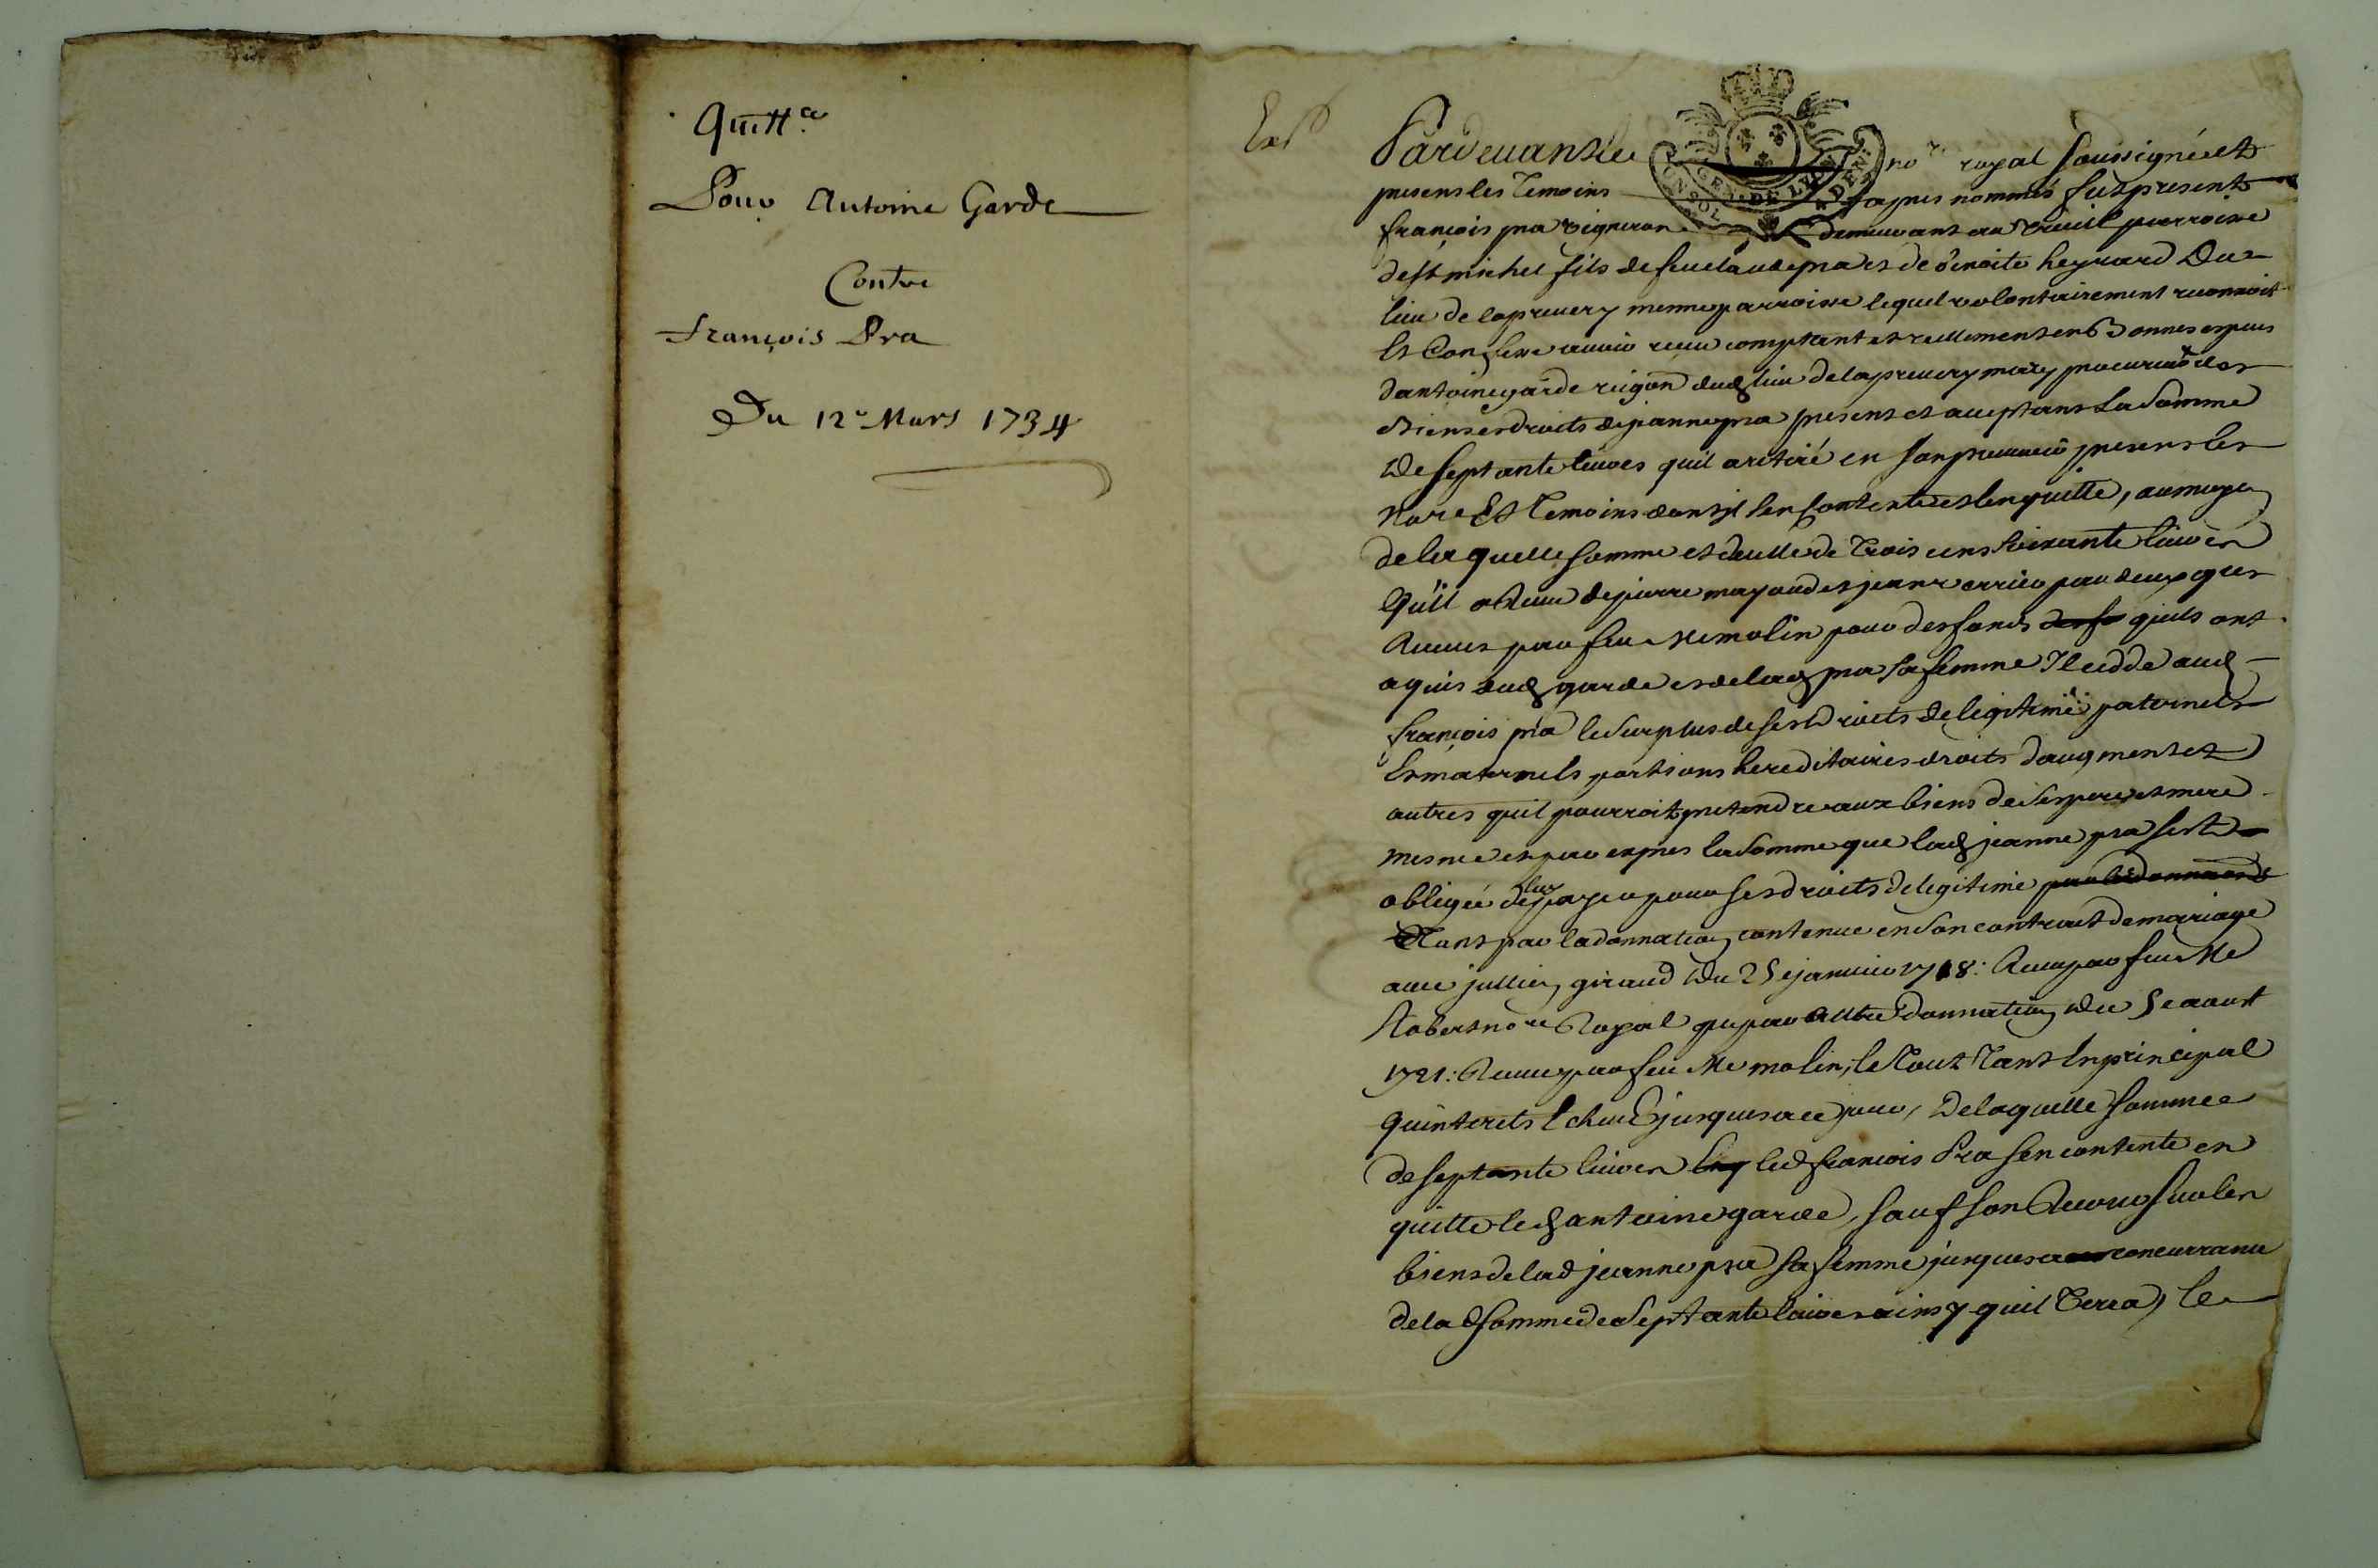 Quitt.ce
Pour Antoine Garde
Contre
François Pra
Du 12e Mars 1734
Exp
Pardevant le no.re royal soussigné et
presens les Temoins apres nommés fut present
françois pra vigneron demeurant au Treuil parroisse
de St michel fils de feu claude pra et de benoite heyraud Du
lieu de la prevery meme parroisse lequel volontairement reconnoit
Et Confesse avoir receu comptant et reellement en bonnes especes
dantoine garde vigñon dud lieu de laprevery mary procureur des
biens et droits de janne pra present et acceptant La Somme
De septante livres quil a retiré en son pouvoir presens les
No.re Et Temoins dont il sen contente et len quitte, au moyen
de laquelle somme et de celle de Trois cens soixante livres
Quil a Receu de pierre mayoud et jean par deux
Receues par feu Me molin pour des fonds des fo quils ont
aquis dud garde et de lad pra sa femme Il cedde aud
françois pra le Surplus de ses Droits de legitime paternels
Et maternels portions hereditaires droits daugment et
autres quil pourroit pretendre aux biens de Ses pere et mere
mesme et par expres la Somme que lad jeanne pra sest
obligée de luy payer pour ses droits de legitime par la donnation
Tant par la donnation contenue en Son contract de mariage
avec jullien giraud Du 25e janvier 1718: Receu par feu Me
Robert no.re Royal que par autre Donnation Du 5e aoust
1721: Receue par feu Me molin, le Tout Tant En principal
Quinterets Echeus jusques a ce jour, De laquelle Somme
de septante livres led francois Pra sen contente en
quitte led antoine garde, sauf son Recours sur les
biens de lad jeanne pra sa femme jusques a concurrance
de lad somme de Septante livres ainsy quil Verra, le